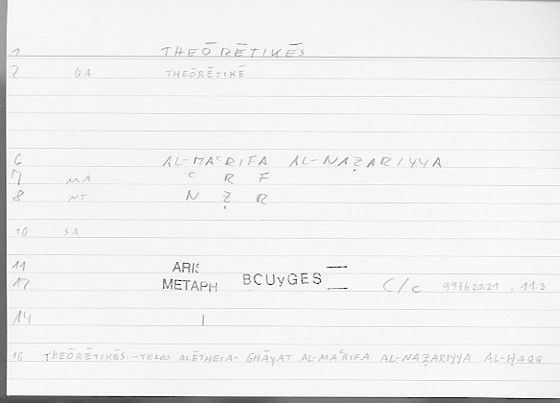 1 THEŌRĒTIKĒS
2 GA THEŌRĒTIKĒ
6 AL-MAʿRIFA AL-NAẒARIYYA
7 MA ʿ R F
8 NT N Ẓ R
10 SA
11 ARIS
12 METAPH BCUyGES C/c 993b20.21 , 11.3
14 |
16 THEŌRĒTIKĒS - TELOS ALĒTHEIA - GHĀYAT AL-MAʿRIFA AL-NAẒARIYYA AL-ḤAQQ